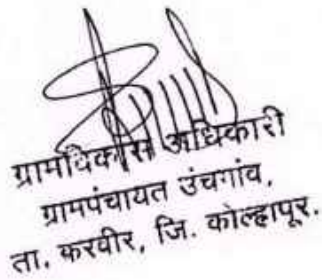 ग्रामविकास अधिकारी
ग्रामपंचायत उंचगांव,
ता. करवीर, जि. कोल्हापूर.